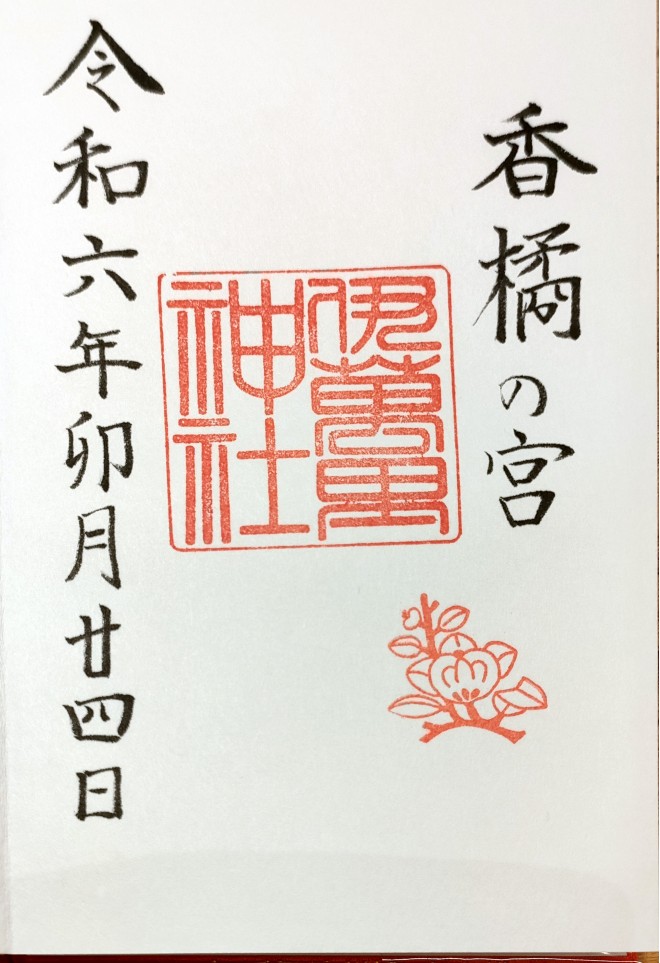 香橘の宮
伊萬里
神社
令和六年卯月廿四日